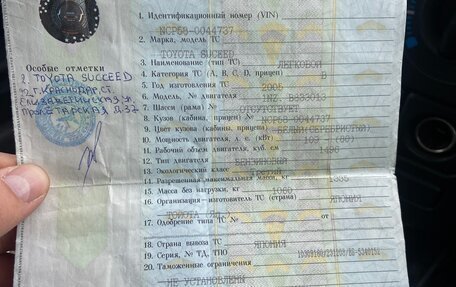 1. Идентификационный номер (VIN)
NCP58-0044737
2. Марка, модель ТС
TOYOTA SUCEED
3. Наименование (тип ТС) ЛЕГКОВОЙ
4. Категория ТС (А, В, С, D, прицеп) В
5. Год изготовления ТС 2005
6. Модель, № двигателя 1NZ
7. Шасси (рама) № ОТСУТСТВУЕТ
8. Кузов (кабина, прицеп) № NCP58-0044737
9. Цвет кузова (кабины, прицепа) БЕЛЫЙ(СЕРЕБРИСТЫЙ)
10. Мощность двигателя, л. с. (кВт) 109
11. Рабочий объем двигателя, куб. см 1496
12. Тип двигателя БЕНЗИНОВЫЙ
13. Экологический класс
14. Разрешенная максимальная масса, кг
15. Масса без нагрузки, кг 1060
16. Организация-изготовитель ТС (страна) ЯПОНИЯ
TOYOTA
17. Одобрение типа ТС № от
18. Страна вывоза ТС ЯПОНИЯ
19. Серия, № ТД, ТПО
20. Таможенные ограничения
НЕ УСТАНОВЛЕНЫ
Особые отметки
2. TOYOTA SUCCEED
г. КРАСНОДАР, СТ.
ЕЛИЗАВЕТИНСКАЯ У
ПРОЛЕТАРСКАЯ Д-37